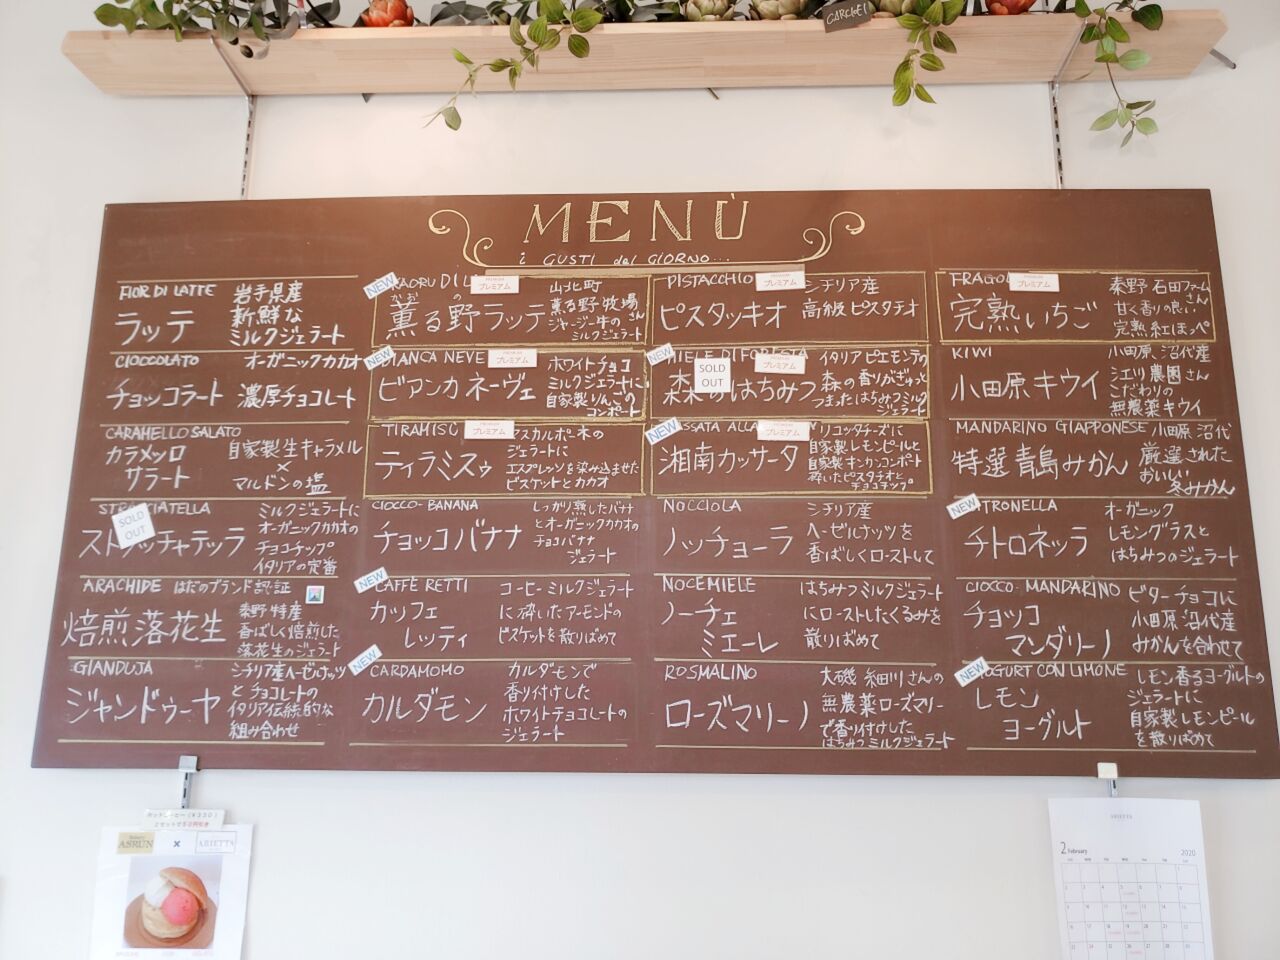 GARCKEI
MENÙ
i GUSTI del GIORNO...
FIOR DI LATTE
ラッテ
岩手県産
新鮮な
ミルクジェラート
CIOCCOLATO
チョッコラート
オーガニックカカオ
濃厚チョコレート
CARAMELLO SALATO
カラメッロ
サラート
自家製生キャラメル
×
マルドンの塩
SOLD
OUT
ミルクジェラートに
オーガニックカカオの
チョコチップ
イタリアの定番
ARACHIDE はだのブランド認証
焙煎落花生
秦野特産
香ばしく焙煎した
落花生のジェラート
GIANDUJA
ジャンドゥーヤ
シチリア産ヘーゼルナッツ
とチョコレートの
イタリア伝統的な
組み合わせ
NEW
KAORU DI
PREMIUM
プレミアム
かおるの
薫る野ラッテ
山北町
薫る野牧場さん
ジャージー牛の
ミルクジェラート
NEW
BIANCA NEVE
PREMIUM
プレミアム
ビアンカ ネーヴェ
ホワイトチョコ
ミルクジェラートに、
自家製りんごの
コンポート
TIRAMISÙ
PREMIUM
プレミアム
ティラミスゥ
マスカルポーネの
ジェラートに
エスプレッソを染み込ませた
ビスケットとカカオ
CIOCCO-BANANA
チョッコバナナ
しっかり熟したバナナ
とオーガニックカカオの
チョコバナナ
ジェラート
NEW
CAFFÈ RETTI
カッフェ
レッティ
コーヒーミルクジェラート
に砕いたアーモンドの
ビスケットを散りばめて
NEW
CARDAMOMO
カルダモン
カルダモンで
香り付けした
ホワイトチョコレートの
ジェラート
PISTACCHIO
PREMIUM
プレミアム
ピスタッキオ
シチリア産
高級ピスタチオ
NEW
MIELE DI FORESTA
SOLD
OUT
PREMIUM
プレミアム
森のはちみつ
イタリアピエモンテの
森の香りがぎゅっと
つまったはちみつミルク
ジェラート
NEW
PREMIUM
プレミアム
湘南カッサータ
リコッタチーズに
自家製レモンピールと
自家製キンカンコンポート
砕いたピスタチオと
チョコチップ。
NOCCIOLA
ノッチョーラ
シチリア産
ヘーゼルナッツを
香ばしくローストして
NOCEMIELE
ノーチェ
ミエーレ
はちみつミルクジェラート
にローストしたくるみを
散りばめて
ROSMALINO
ローズマリーノ
大磯 細川さんの
無農薬ローズマリー
で香り付けした
はちみつミルクジェラート
PREMIUM
プレミアム
完熟いちご
秦野 石田ファームさん
甘く香りの良い
完熟紅ほっぺ
KIWI
小田原キウイ
小田原、沼代産
シエリ農園さん
こだわりの
無農薬キウイ
MANDARINO GIAPPONESE
特選青島みかん
小田原 沼代
厳選された
おいしい
冬みかん
NEW
チトロネッラ
オーガニック
レモングラスと
はちみつのジェラート
CIOCCO-MANDARINO
チョッコ
マンダリーノ
ビターチョコに
小田原沼代産
みかんを合わせて
NEW
YOGURT CON LIMONE
レモン
ヨーグルト
レモン香るヨーグルトの
ジェラートに
自家製レモンピール
を散りばめて
ホットコーヒー(¥350)
とセットで50円引き
ASRUN
×
ARIETTA
ARIETTA
2 February
2020